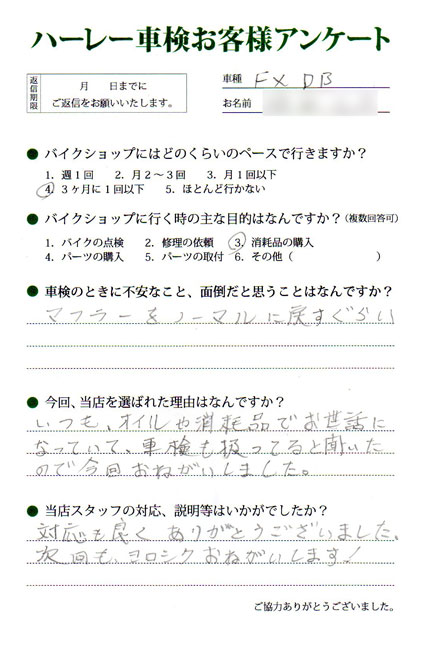 ハーレー車検お客様アンケート
返信期限
月 日までに
ご返信をお願いいたします。
車種 FXDB
お名前
● バイクショップにはどのくらいのペースで行きますか？
1. 週1回 2. 月2～3回 3. 月1回以下
4. 3ヶ月に1回以下 5. ほとんど行かない
● バイクショップに行く時の主な目的はなんですか？(複数回答可)
1. バイクの点検 2. 修理の依頼 3. 消耗品の購入
4. パーツの購入 5. パーツの取付 6. その他（ ）
● 車検のときに不安なこと、面倒だと思うことはなんですか？
マフラーをノーマルに戻すぐらい
● 今回、当店を選ばれた理由はなんですか？
いつも、オイルや消耗品でお世話に
なっていて、車検も扱ってると聞いた
ので今回おねがいしました。
● 当店スタッフの対応、説明等はいかがでしたか？
対応も良くありがとうございました、
次回も、ヨロシクおねがいします！
ご協力ありがとうございました。